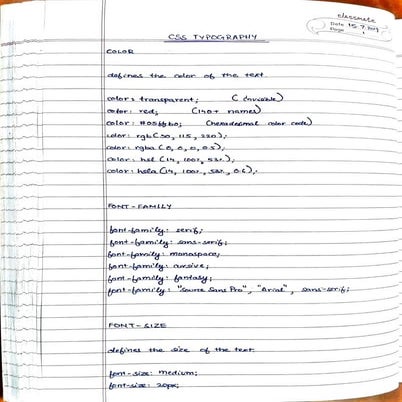 classmate
Date 15.7.2019
Page 1
CSS TYPOGRAPHY
COLOR
defines the color of the text.
color: transparent; (invisible)
color: red; (140+ names)
color: #05ffb0; (hexadecimal color code)
color: rgb(50, 115, 220);
color: rgba(0, 0, 0, 0.5);
color: hsl(14, 100%, 53%);
color: hsla(14, 100%, 53%, 0.6);
FONT-FAMILY
font-family: serif;
font-family: sans-serif;
font-family: monospace;
font-family: cursive;
font-family: fantasy;
font-family: "Source Sans Pro", "Arial", sans-serif;
FONT-SIZE
defines the size of the text.
font-size: medium;
font-size: 20px;